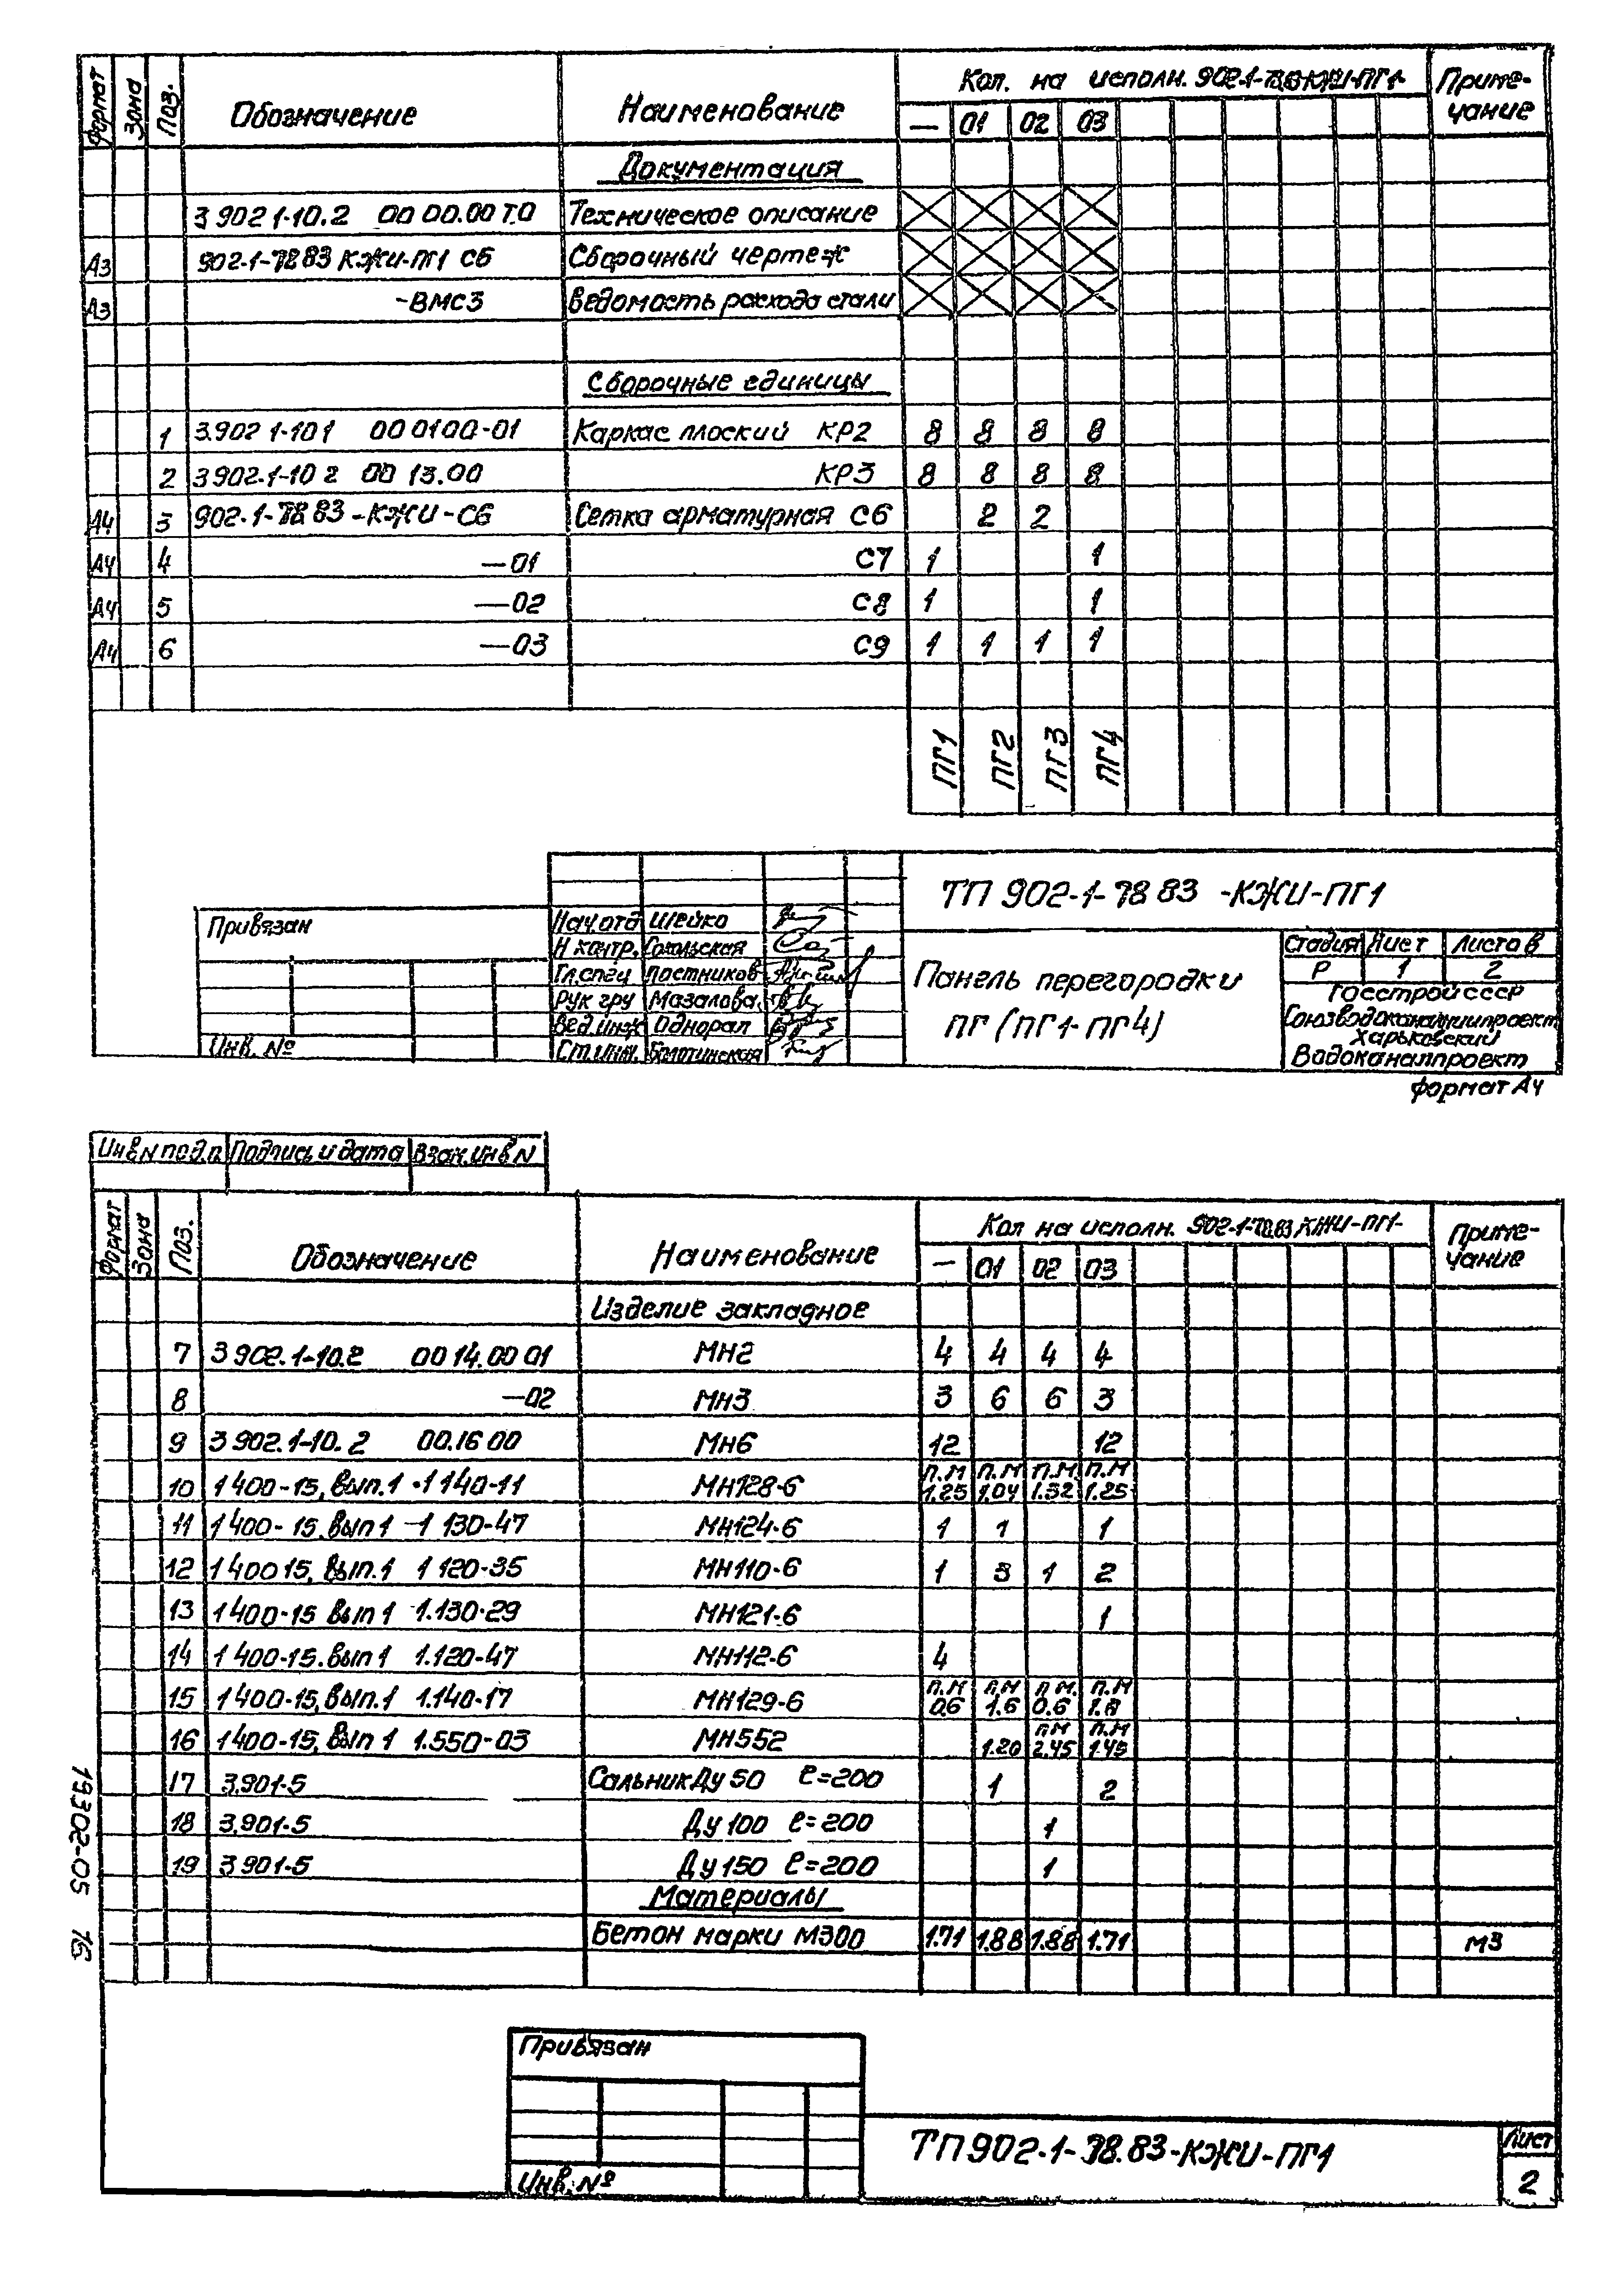 Формат Зона Поз. Обозначение Наименование Кол. на исполн. 902-1-78.83-КЖИ-ПГ1- Приме-
чание
— 01 02 03
Документация
3 902 1-10.2 00 00.00 Т.О Техническое описание
А3 902-1-78 83 КЖИ-ПГ1 СБ Сборочный чертеж
А3 -ВМС3 Ведомость расхода стали
Сборочные единицы
1 3.902 1-10 1 00 01 00-01 Каркас плоский КР2 8 8 8 8
2 3 902-1-10 2 00 13.00 КР3 8 8 8 8
А4 3 902-1-78 83-КЖИ-С6 Сетка арматурная С6 2 2
А4 4 —01 С7 1 1
А4 5 —02 С8 1 1
А4 6 —03 С9 1 1 1 1
ПГ1 ПГ2 ПГ3 ПГ4
ТП 902-1-78 83 -КЖИ-ПГ1
Привязан
Нач.отд Шейко
Н контр. Сокольская
Гл.спец Постников
Рук гру Мазалова
Вед.инж Однорал
Ст.инж. Болотинская
Инв. №
Панель перегородки
ПГ (ПГ1-ПГ4)
Стадия Лист Листов
Р 1 2
Госстрой СССР
Союзводоканалниипроект
Харьковский
Водоканалпроект
формат А4
Инв.N подл. Подпись и дата Взам.инв N
Формат Зона Поз. Обозначение Наименование Кол на исполн. 902-1-78.83 КЖИ-ПГ1- Приме-
чание
— 01 02 03
Изделие закладное
7 3 902.1-10.2 00 14.00 01 МН2 4 4 4 4
8 —02 МН3 3 6 6 3
9 3 902.1-10.2 00.16 00 МН6 12 12
п.м п.м п.м. п.м
10 1 400-15, вып.1 -1 140-11 МН128-6 1.25 1.04 1.32 1.25
11 1 400-15, вып 1 -1 130-47 МН124-6 1 1 1
12 1 400 15, вып.1 1 120-35 МН110-6 1 3 1 2
13 1 400-15 вып 1 1.130-29 МН121-6 1
14 1 400-15. вып 1 1.120-47 МН112-6 4
п.м п.м п м. п.м
15 1 400-15, вып.1 1.140-17 МН129-6 0.6 1.6 0.6 1.8
п.м п.м
16 1 400-15, вып 1 1.550-03 МН552 1.20 2.45 1.45
17 3.901-5 Сальник Ду 50 ℓ=200 1 2
18 3.901-5 Ду 100 ℓ=200 1
19 3 901-5 Ду 150 ℓ=200 1
Материалы
Бетон марки М300 1.71 1.88 1.88 1.71 м3
19302-05 16
Привязан
Инв. №
ТП 902-1-78.83-КЖИ-ПГ1
Лист
2